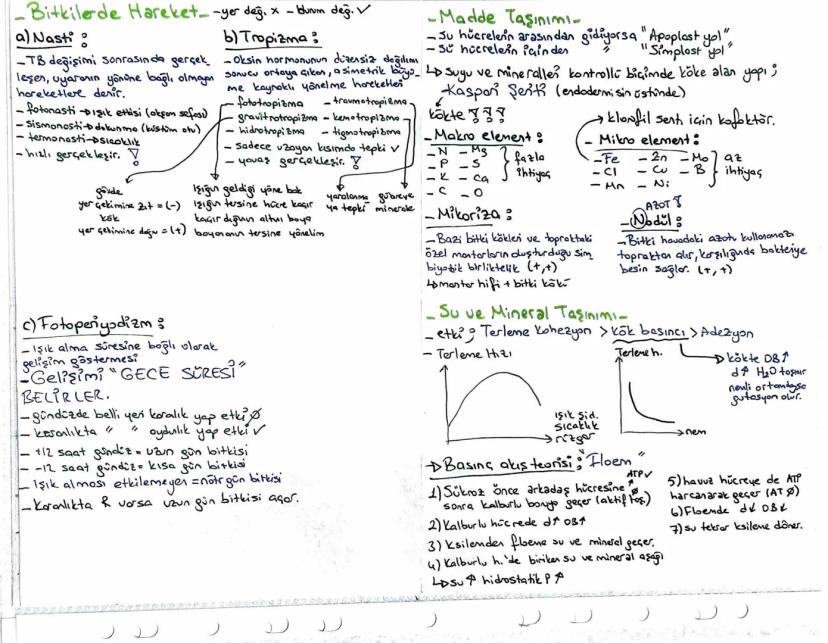 - Bitkilerde Hareket - - yer değ. x - durum değ. ✓
a) Nasti :
- TB değişimi sonrasında gerçek
leşen, uyaranın yönüne bağlı olmayan
hareketlere denir.
- fotonasti → ışık etkisi (akşam sefası)
- sismonasti → dokunma (küstüm otu)
- termonasti → sıcaklık
- hızlı gerçekleşir. !
b) Tropizma :
- Oksin hormonunun düzensiz dağılımı
sonucu ortaya çıkan, asimetrik büyü-
me kaynaklı yönelme hareketleri
- fototropizma - travmatropizma
- gravitrotropizma - kemotropizma
- hidrotropizma - tigmotropizma
- sadece uzayan kısımda tepki ✓
- yavaş gerçekleşir. !
gövde
yer çekimine zıt = (-)
kök
yer çekimine doğru = (+)
ışığın geldiği yöne bak
ışığın tersine hücre kaçır
kaçırdığının altını boya
boyananın tersine yönelim
yaralanma
ya tepki
gübreye
minerale
c) Fotoperiyodizm :
- Işık alma süresine bağlı olarak
gelişim göstermesi
- Gelişimi "GECE SÜRESİ"
BELİRLER.
- gündüzde belli yeri karalık yap etki Ø
- karanlıkta " " aydınlık yap etki ✓
- +12 saat gündüz = uzun gün bitkisi
- -12 saat gündüz = kısa gün bitkisi
- Işık alması etkilemeyen = nötr gün bitkisi
- Karanlıkta varsa uzun gün bitkisi açar.
- Madde Taşınımı -
- Su hücrelerin arasından gidiyorsa "Apoplast yol"
- Su hücrelerin içinden " "Simplast yol"
↳ Suyu ve mineralleri kontrollü biçimde köke alan yapı ;
Kaspari Şeriti (endodermisin üstünde)
kökte ! ! !
- Makro element :
- N - Mg
- P - S
- K - Ca
- C - O
fazla
ihtiyaç
→ klorofil senti için kofaktör.
- Mikro element :
- Fe - Zn - Mo
- Cl - Cu - B
- Mn - Ni
az
ihtiyaç
- Mikoriza :
- Bazı bitki kökleri ve topraktaki
özel mantarların oluşturduğu sim
biyotik birliktelik (+,+)
↳ mantar hifi + bitki kökü
AZOT !
- Nodül :
- Bitki havadaki azotu kullanamaz
topraktan alır, karşılığında bakteriye
besin sağlar. (+,+)
- Su ve Mineral Taşınımı -
- etki ; Terleme Kohezyon > kök basıncı > Adezyon
- Terleme Hızı
ışık şid.
sıcaklık
rüzgar
Terleme h.
nem
→ kökte OB↑
d↑ H₂O taşınır
nemli ortamdaysa
gutasyon olur.
→ Basınç akış teorisi : "Floem"
ATP ✓
1) Sükroz önce arkadaş hücresine
sonra kalburlu boruya geçer (aktif taş)
2) Kalburlu hücrede d↑ OB↑
3) Ksilemden floeme su ve mineral geçer.
4) Kalburlu h.'de biriken su ve mineral aşağı
↳ su ↑ hidrostatik P ↑
5) havuz hücreye de ATP
harcanarak geçer (AT Ø)
6) Floemde d↓ OB↓
7) su tekrar ksileme döner.